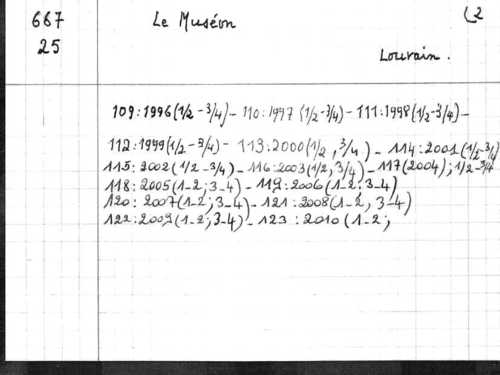 667 Le Muséon (2
25 Louvain.
109:1996(1/2-3/4)-110:1997(1/2-3/4)-111:1998(1/2-3/4)-
112:1999(1/2-3/4)-113:2000(1/2,3/4)-114:2001(1/2-3/4)
115:2002(1/2-3/4)-116:2003(1/2,3/4)-117(2004);1/2-3/4
118:2005(1-2;3-4)-119:2006(1-2;3-4)
120:2007(1-2;3-4)-121:2008(1-2,3-4)
122:2009(1-2;3-4)-123:2010(1-2;